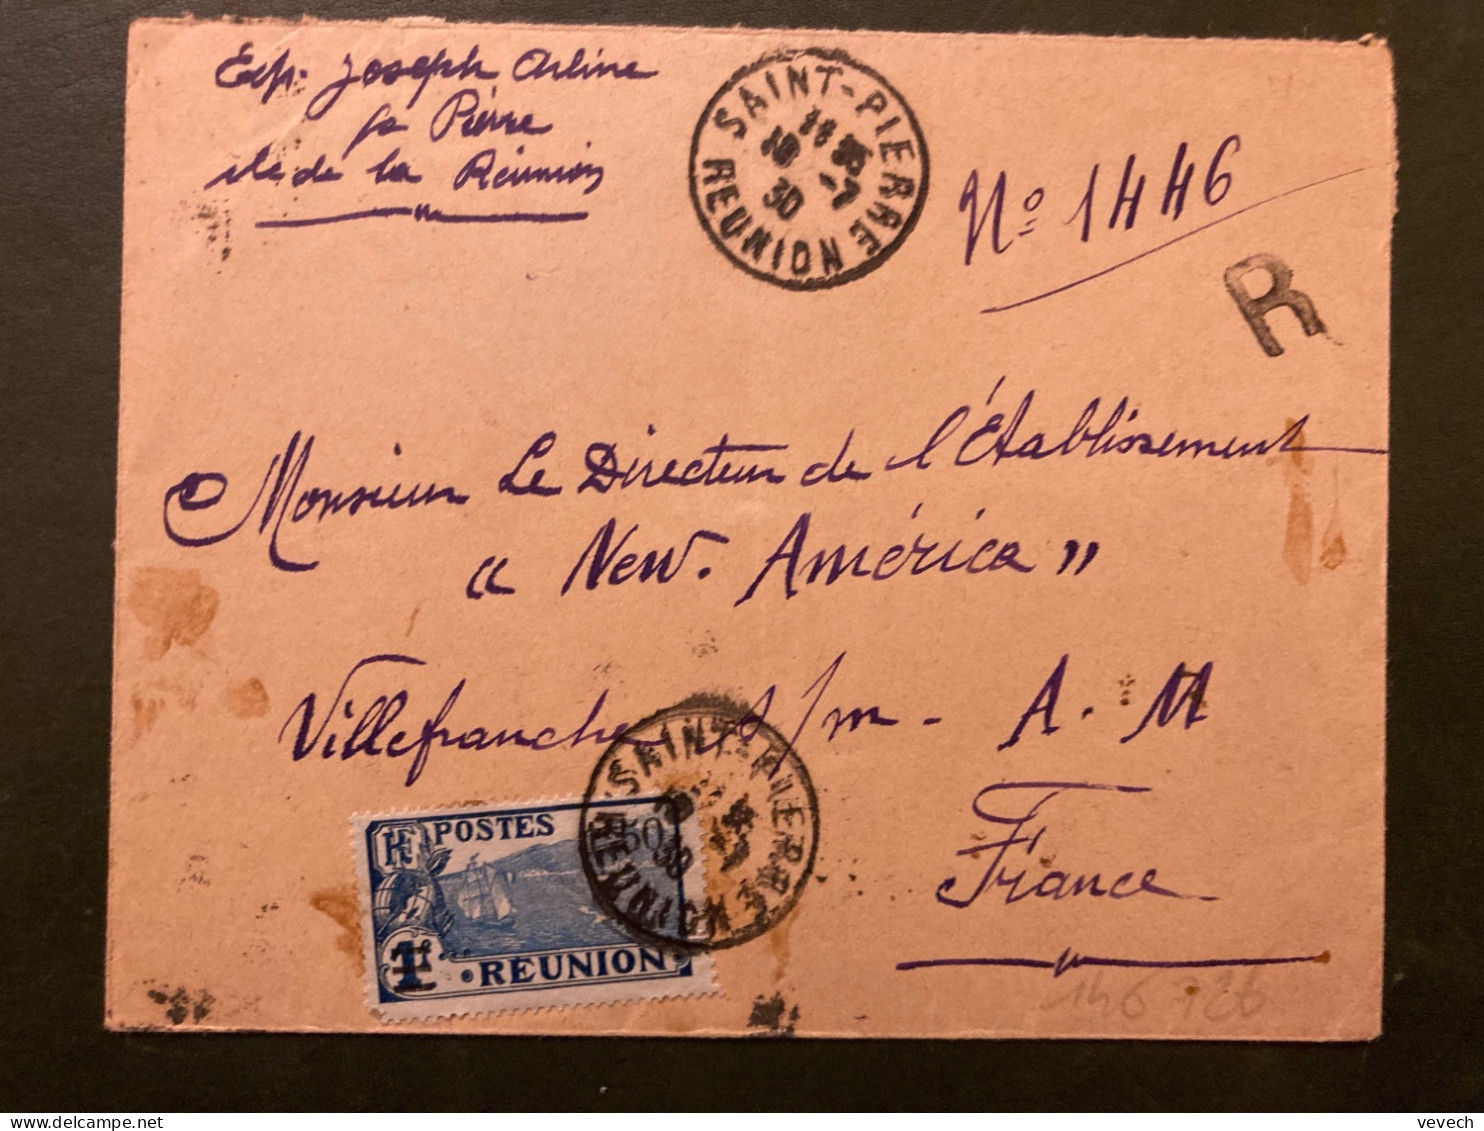 Exp. Joseph Arline
St Pierre
île de la Réunion
SAINT-PIERRE
REUNION
30
N° 1446
R
Monsieur Le Directeur de l'Établissement
"New. América"
Villefranche s/m - A. M
France
SAINT-PIERRE
REUNION
30
RF POSTES
50
1f
REUNION
146 726
vevech